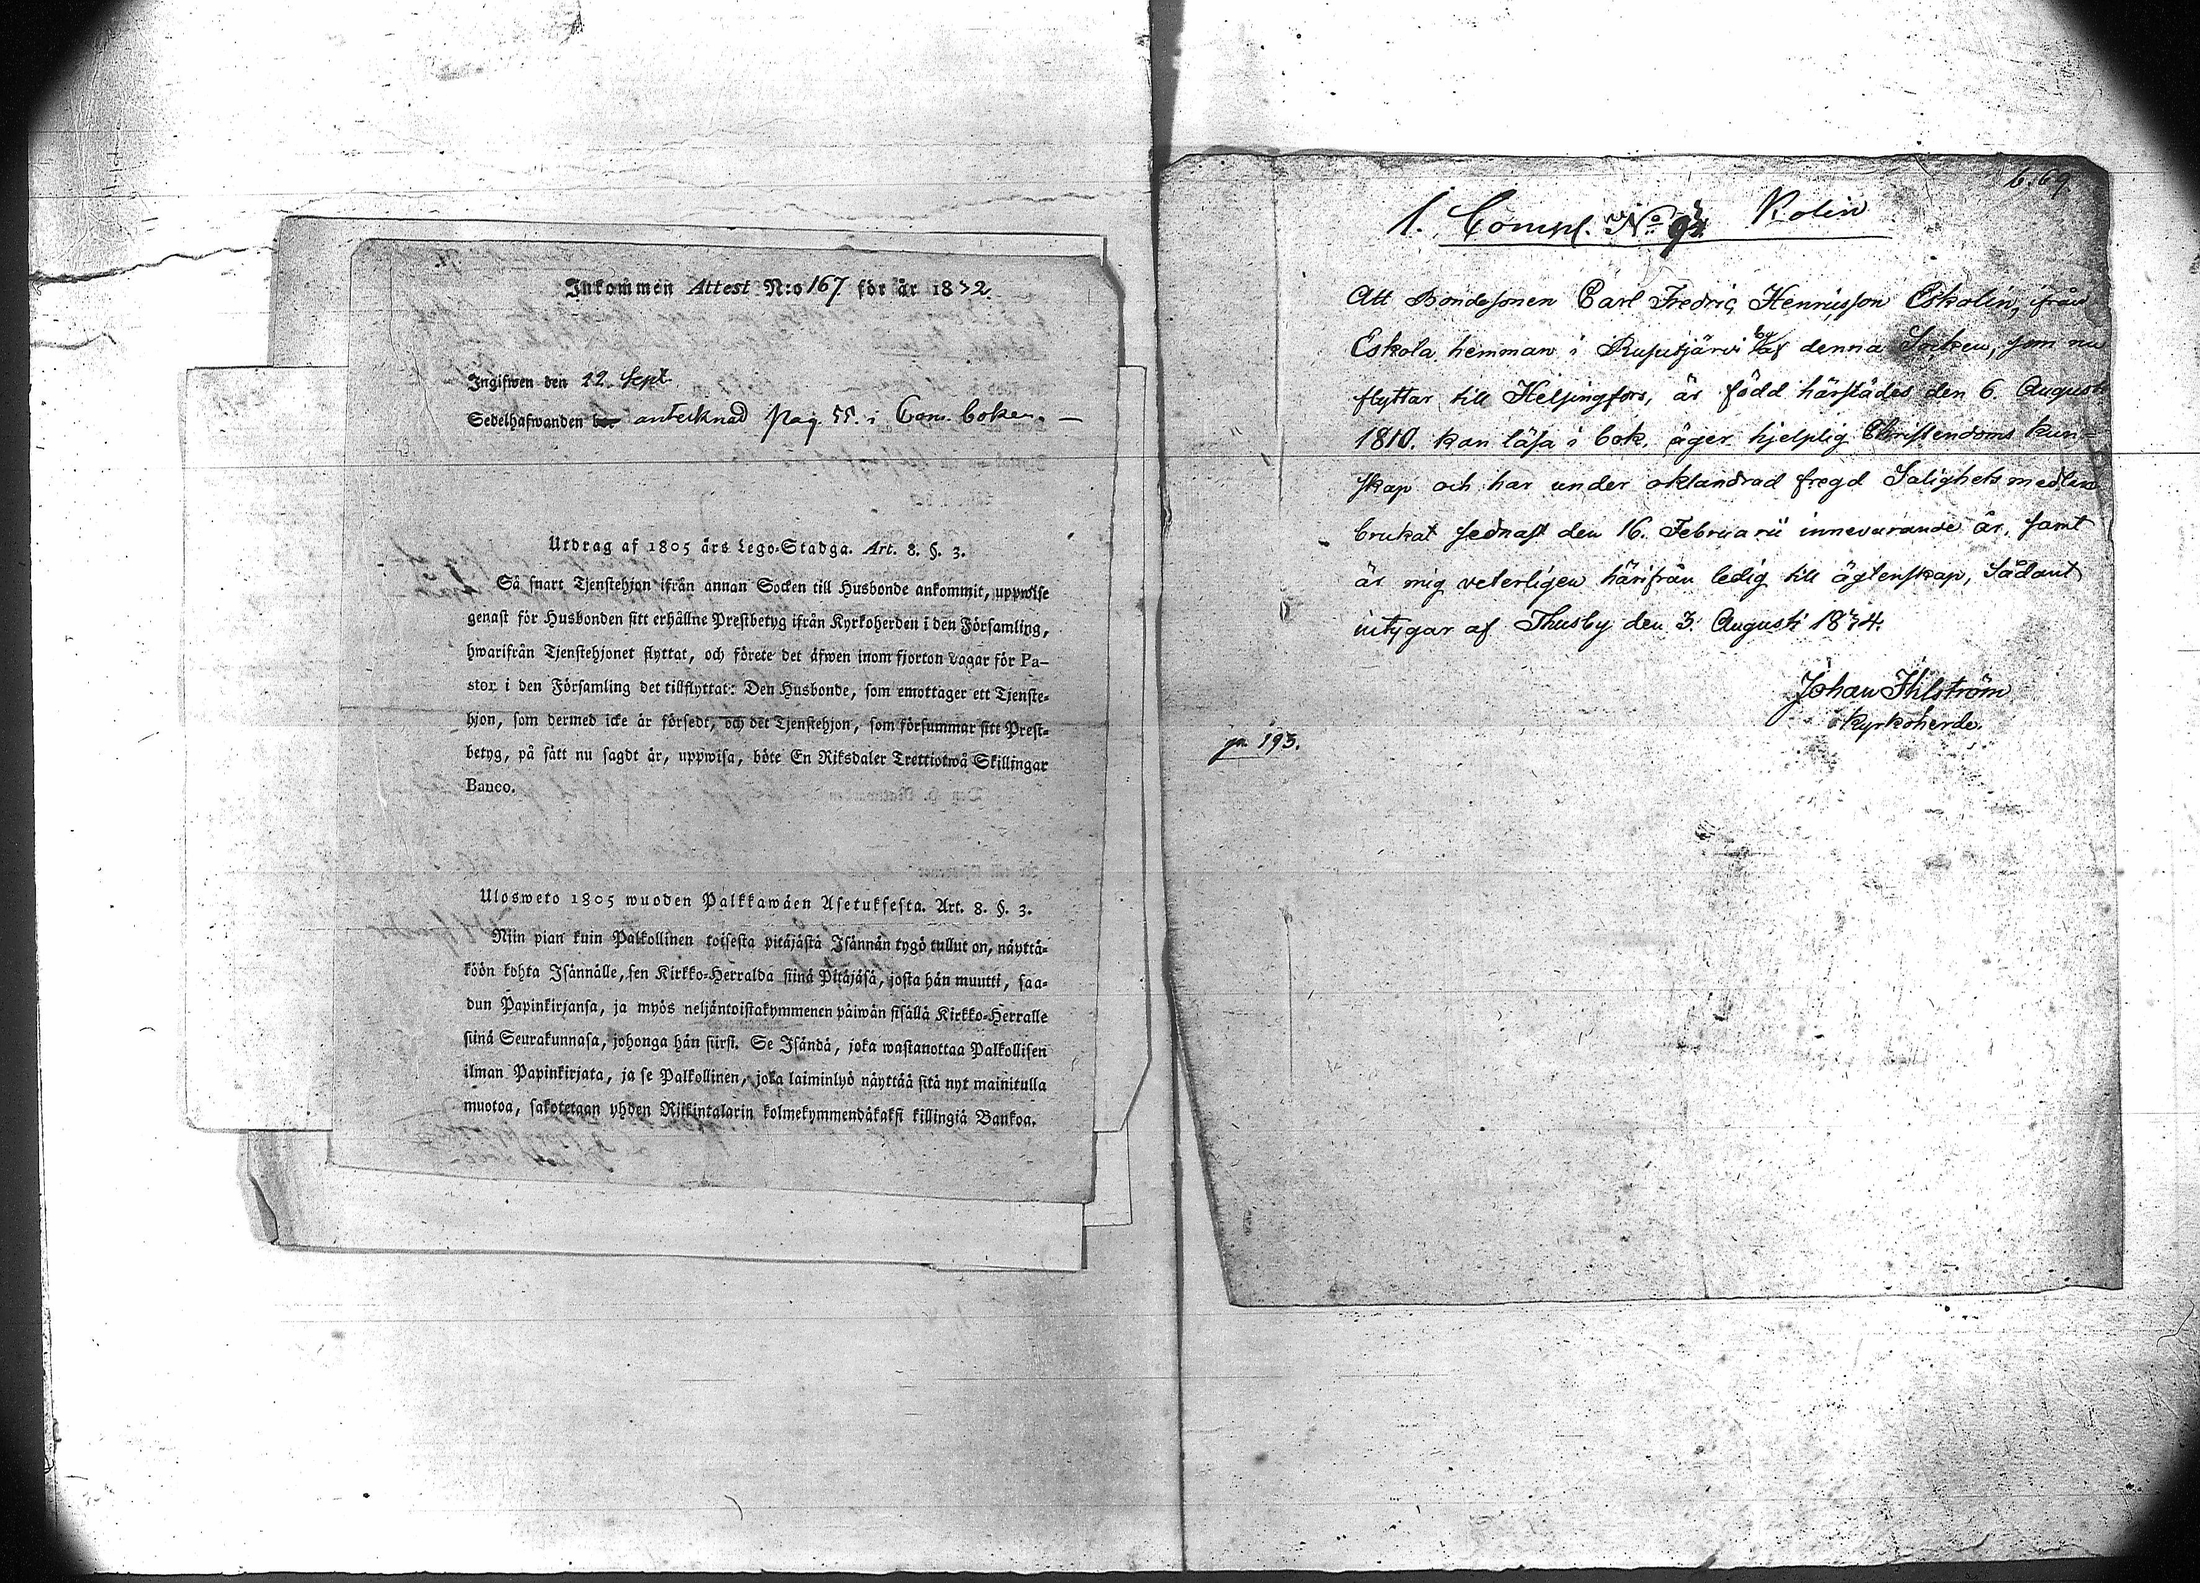 Inkommen Attest N:o 167 för år 1832.
Ingifwen den 22. Sept.
Sedelhafwanden bor antecknad Pag. 55. i Com. boken. —
Utdrag af 1805 års Lego-Stadga. Art. 8. §. 3.
Så snart Tjenstehjon ifrån annan Socken till Husbonde ankommit, uppwise
genast för Husbonden sitt erhållne Prestbetyg ifrån Kyrkoherden i den Församling,
hwarifrån Tjenstehjonet flyttat, och förete det äfwen inom fjorton dagar för Pa-
stor i den Församling det tillflyttat: Den Husbonde, som emottager ett Tjenste-
hjon, som dermed icke är försedt, och det Tjenstehjon, som försummar sitt Prest-
betyg, på sätt nu sagdt är, uppwisa, böte En Riksdaler Trettiotwå Skillingar
Banco.
Ulosweto 1805 wuoden Palkkawäen Asetuksesta. Art. 8. §. 3.
Niin pian kuin Palkollinen toisesta pitäjästä Isännän tygö tullut on, näyttä-
köön kohta Isännälle, sen Kirkko-Herralda siinä Pitäjäsä, josta hän muutti, saa-
dun Papinkirjansa, ja myös neljäntoistakymmenen päiwän sisällä Kirkko-Herralle
siinä Seurakunnasa, johonga hän siirsi. Se Isändä, joka wastanottaa Palkollisen
ilman Papinkirjata, ja se Palkollinen, joka laiminlyö näyttää sitä nyt mainitulla
muotoa, sakotetaan yhden Riikintalarin kolmekymmendäkaksi killingiä Bankoa.
b. 69.
1. Compl. No Rolin
Att Bondesonen Carl Fredric Henricsson Eskolin, ifrån
Eskola hemman i Rusutjärvi by af denna Socken, som nu
flyttar till Helsingfors, är född härstädes den 6 Augusti
1810. kan läsa i bok, äger hjelplig Christendoms kun-
skap och har under oklandrad fregd Salighetsmedlen
brukat sednast den 16. Februarii innevarande år, samt
är mig veterligen härifrån ledig till ägtenskap, Sådant
intygar af Thusby den 3. Augusti 1834.
Johan Ihlström
Kyrkoherde.
p. 193.